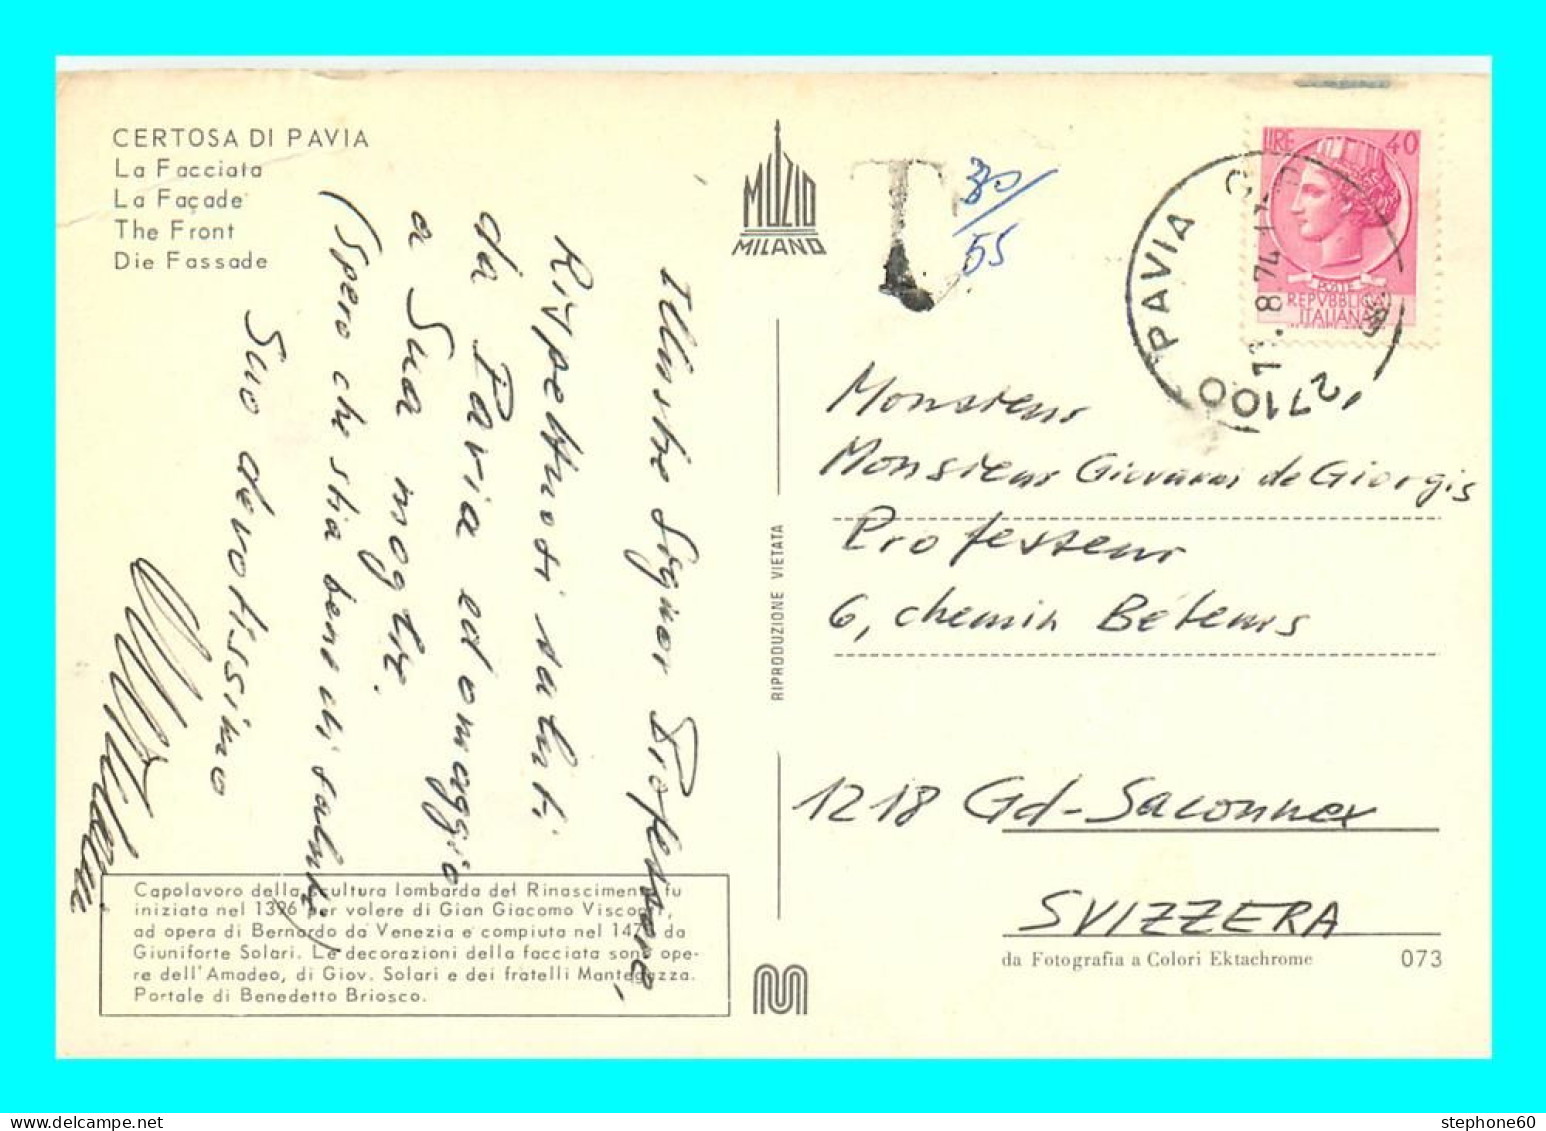 CERTOSA DI PAVIA
La Facciata
La Façade
The Front
Die Fassade
MUZIO
MILANO
T
30/55
LIRE 40
POSTE
REPVBBLICA
ITALIANA
27100 PAVIA
11.8.74
Illustre Signor Professore,
Rispettuosi saluti
da Pavia ed omaggio
a Sua moglie.
(Spero che stia bene di salute)
Suo devotissimo
RIPRODUZIONE VIETATA
Monsieur
Monsieur Giovanni de Giorgis
Professeur
6, chemin Bétems
1218 Gd-Saconnex
SVIZZERA
Capolavoro della scultura lombarda del Rinascimento fu
iniziata nel 1396 per volere di Gian Giacomo Visconti,
ad opera di Bernardo da Venezia e compiuta nel 147 da
Giuniforte Solari. Le decorazioni della facciata sono ope-
re dell'Amadeo, di Giov. Solari e dei fratelli Mantegazza.
Portale di Benedetto Briosco.
da Fotografia a Colori Ektachrome
073
stephone60